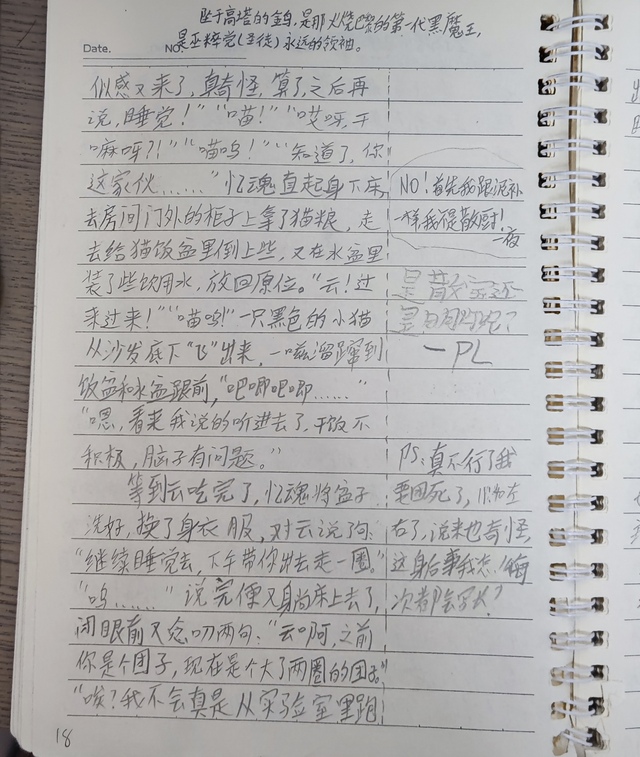 坠于高塔的金乌,是那火烧巴黎的第一代黑魔王,
是巫粹党(圣徒)永远的领袖。
Date. NO.
似感又来了,真奇怪,算了,之后再
说,睡觉!”“喵!”“哎呀,干
嘛呀?!”“喵呜!”“知道了,你
这家伙……”忆魂直起身下床
去房间门外的柜子上拿了猫粮,走
去给猫饭盆里倒上些,又在水盆里
装了些饮用水,放回原位。“云!过
来过来!”“喵呜!”一只黑色的小猫
从沙发底下“飞”出来,一嗞溜蹿到
饭盆和水盆跟前,“吧唧吧唧……”
“嗯,看来我说的听进去了,干饭不
积极,脑子有问题。”
等到云吃完了,忆魂将盆子
洗好,换了身衣服,对云说了句:
“继续睡觉去,下午带你出去走一圈。”
“呜……”说完便又躺床上去了,
闭眼前又念叨两句:“云啊,之前
你是个团子,现在是个大了两圈的团子”
“咳?我不会真是从实验室里跑
NO!首先我跟泥补
一样我不是散厨!
一夜
是散
是
—PL
PS:真不行了我
要困死了,
右了,说来也奇怪,
这身后事我怎么每
次都会写长?
18